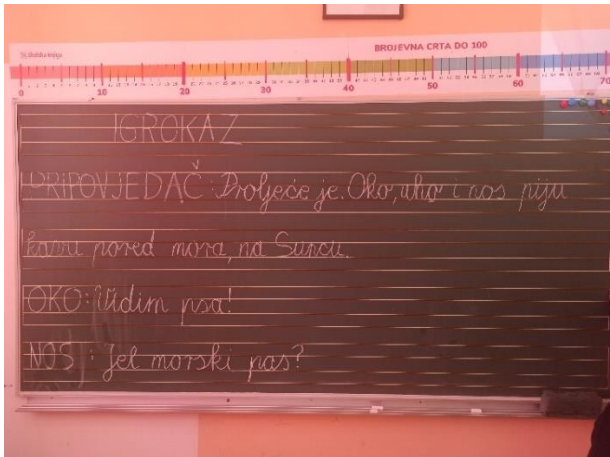 BROJEVNA CRTA DO 100
0 10 20 30 40 50 60 70
IGROKAZ
PRIPOVJEDAČ: Proljeće je. Oko, uho i nos piju
kavu pored mora, na Suncu.
OKO: Vidim psa!
NOS: Jel morski pas?